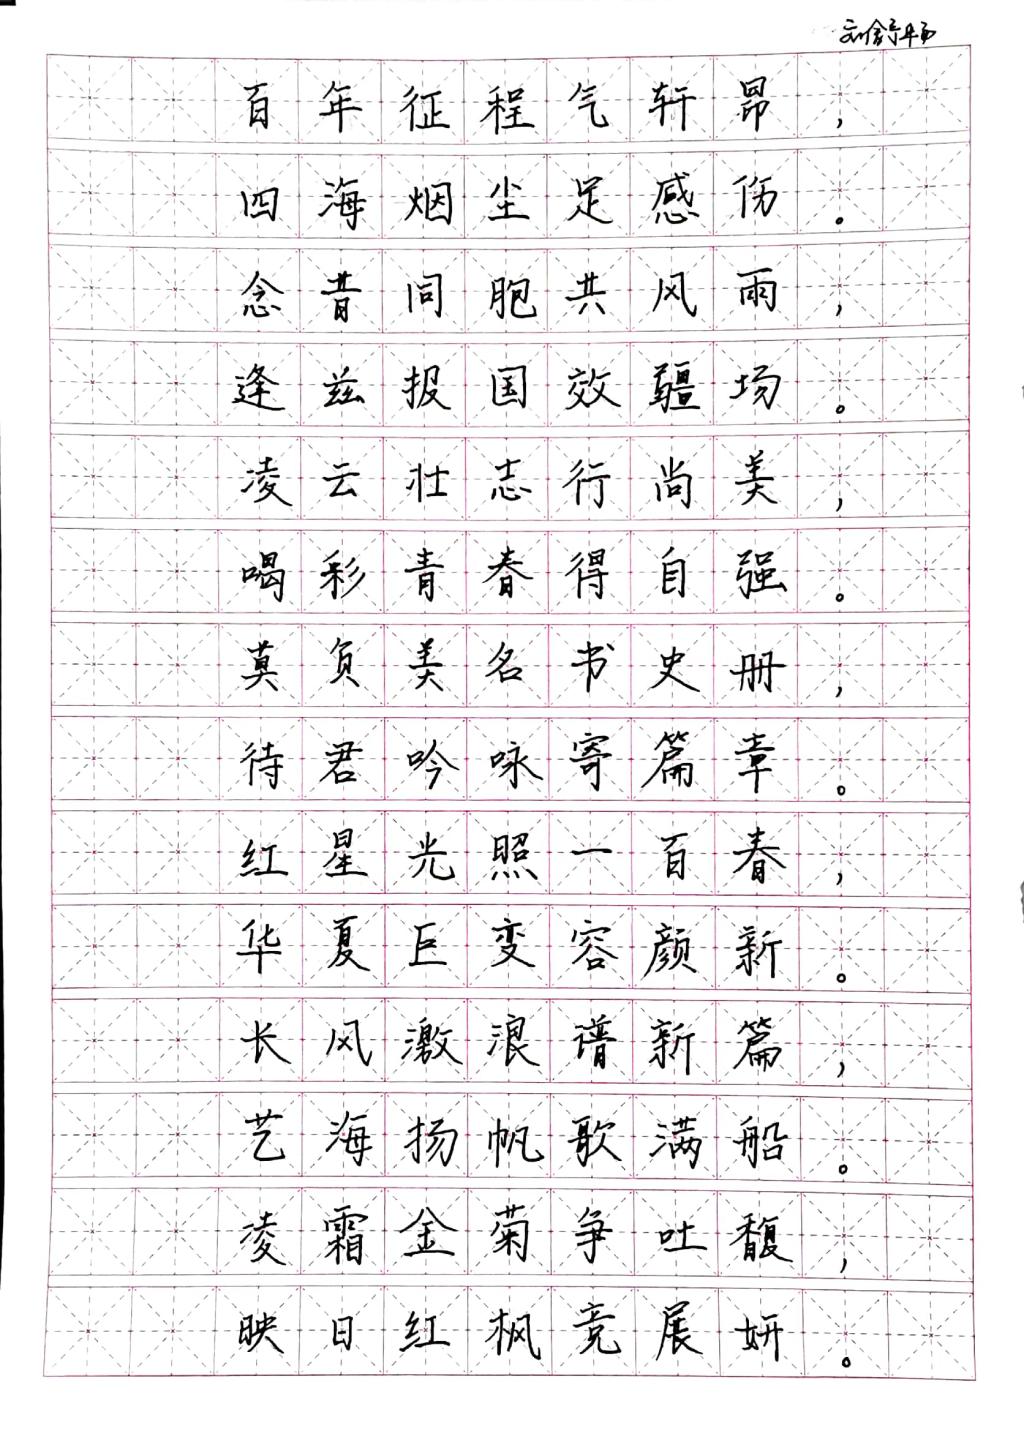 刘舒畅
百年征程气轩昂，
四海烟尘足感伤。
念昔同胞共风雨，
逢兹报国效疆场。
凌云壮志行尚美，
喝彩青春得自强。
莫负美名书史册，
待君吟咏寄篇章。
红星光照一百春，
华夏巨变容颜新。
长风激浪谱新篇，
艺海扬帆歌满船。
凌霜金菊争吐馥，
映日红枫竞展妍。